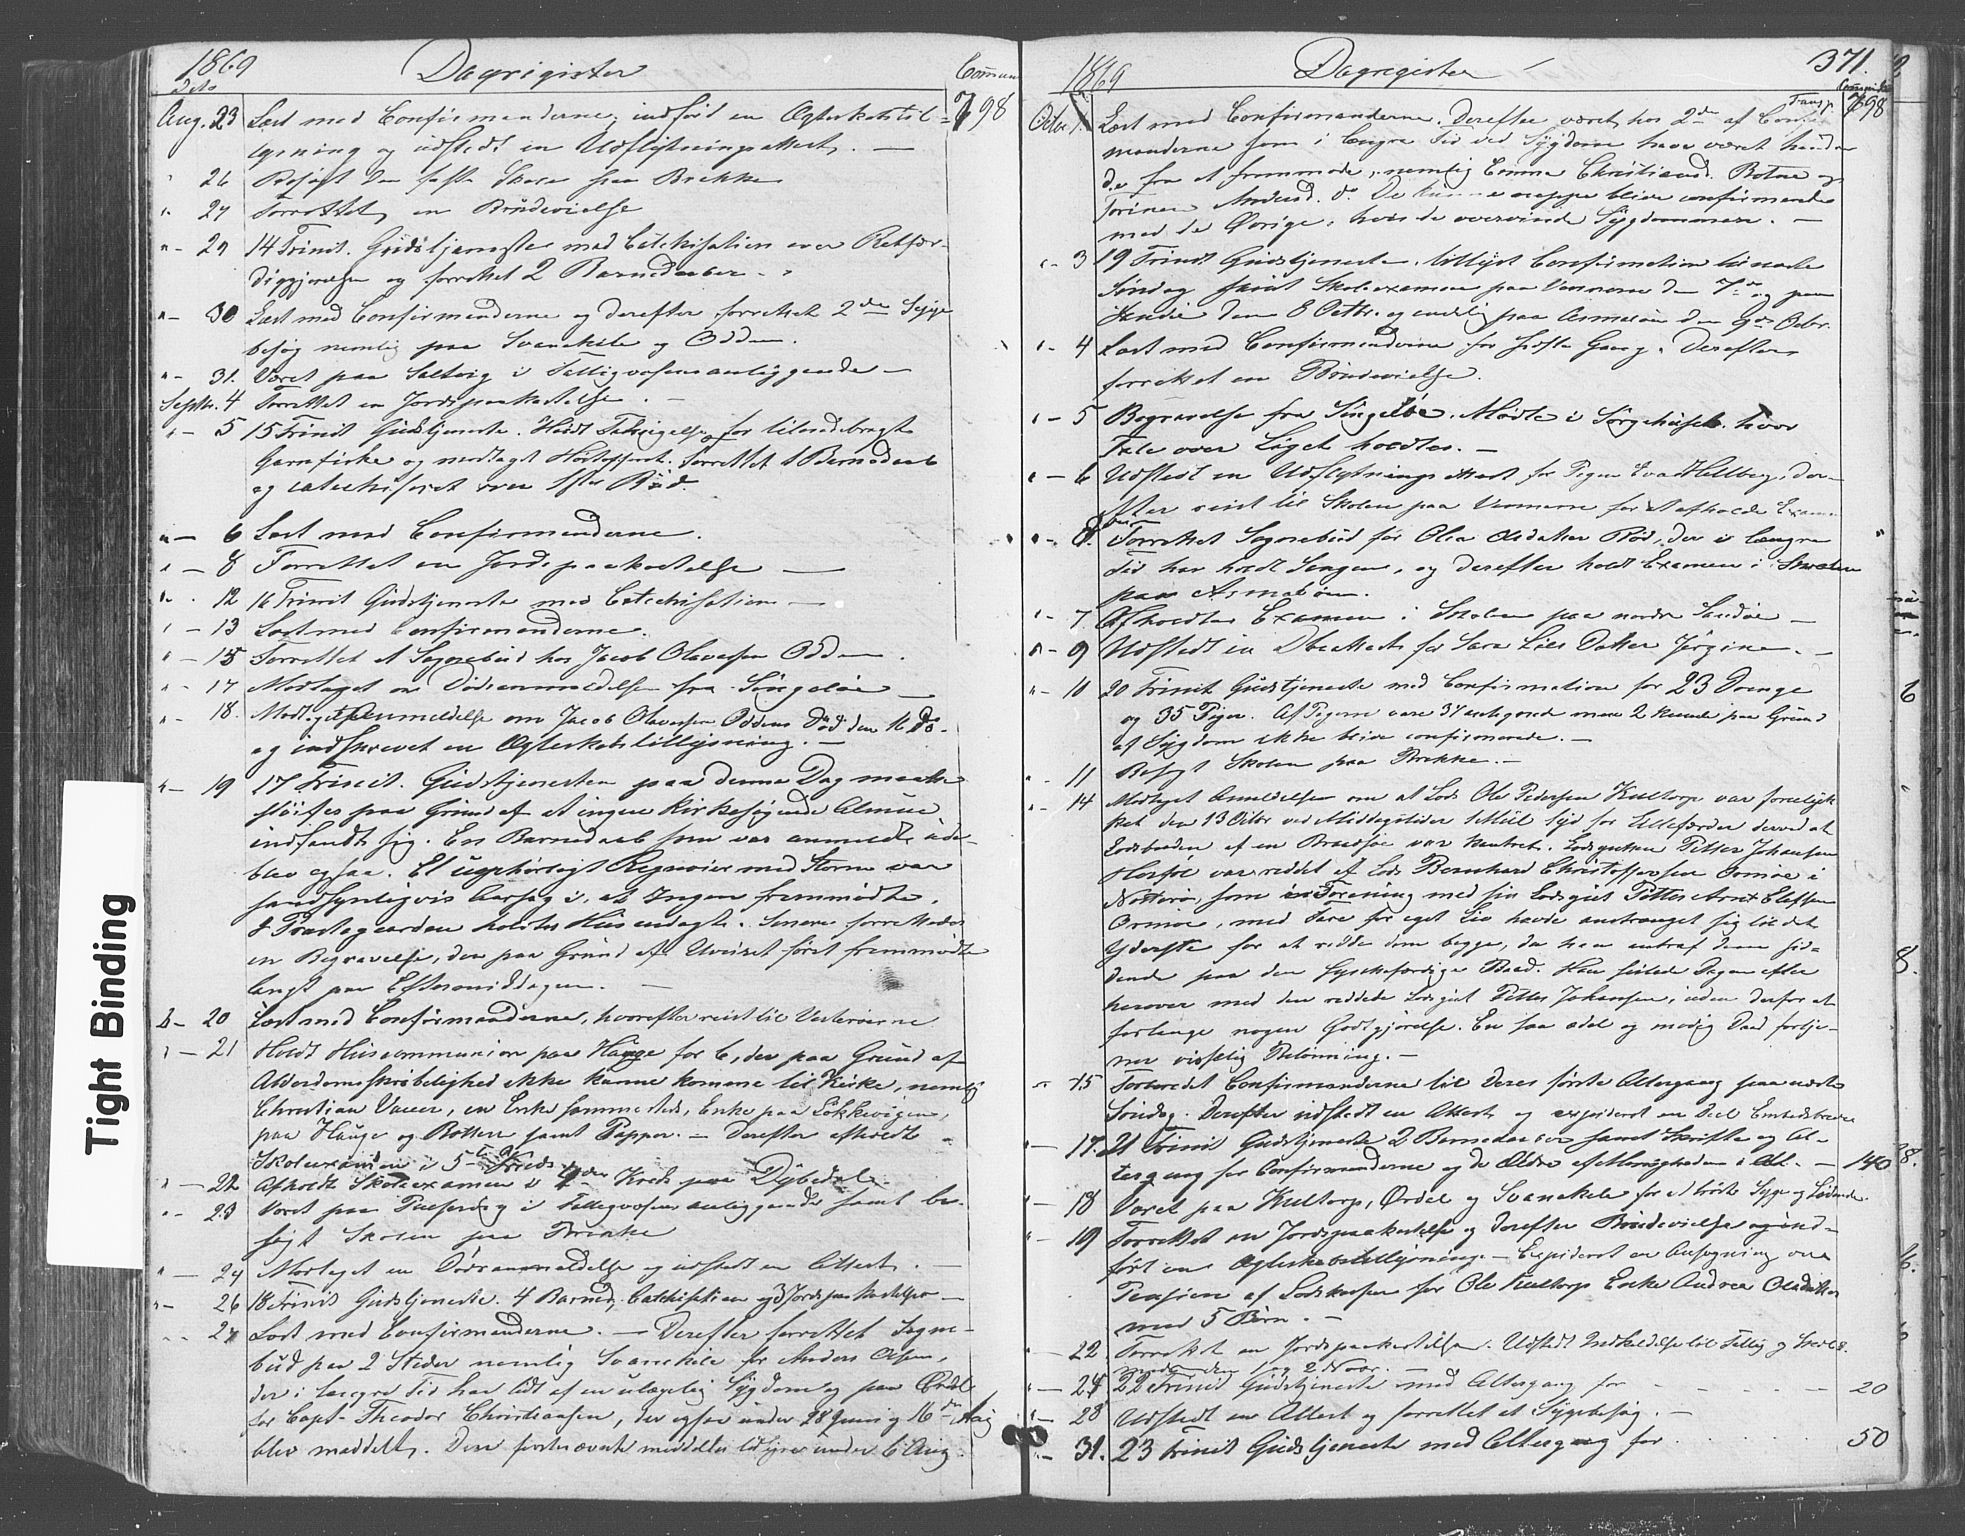 1869
Dagregister
Commun
Dato
Aug. 23 Læst med Confirmanderne, indført en Ægteskabstil- 798
lysning og udstedt en Udflytningsattest. —
" 26 Besøgt den faste Skole paa Brekke
" 27 Forrettet en Brudevielse
" — 29 14 Trinit. Gudstjeneste med Catechisation over Retfær-
diggjørelse og forrettet 2 Barnedaaber.
" — 30 Læst med Confirmanderne og derefter forrettet 2de Syge
besøg nemlig paa Svanekile og Odden.
" — 31. Været paa Saltvig i Fattigvæsensanliggende —
Septbr. 4 Forrettet en Jordspaakastelse. —
" — 5 15 Trinit Gudstjeneste. Holdt Taksigelse for tilendebragt
og modtaget Høstoffer. Forrettet 1 Barnedaab
og catechiseret over 1ste Bud.
" — 6 Læst med Confirmanderne.
" — 8 Forrettet en Jordspaakastelse —
" 12 16 Trinit Gudstjeneste med Catechisation —
" — 13 Læst med Confirmanderne.
" — 15 Forrettet et Sognebud hos Jacob Olavesen Odden.
" — 17 Modtaget en Dødsanmeldelse fra Singeløe —
" — 18. Modtaget Anmeldelse om Jacob Olavesen Oddens Død den 16 ds.
og indskrevet en Ægteskabstillysning. —
" — 19 17 Trinit. Gudstjenesten paa denne Dag maatte
sløifes paa Grund af at ingen Kirkesøgende Almue
indfandt sig. En Barnedaab som var anmeldt ude-
blev ogsaa. Et uophørligt Regnveir med Storm var
sandsynligvis Aarsag i, at Ingen fremmødte.
I Præstegaarden holdtes Husandagt. Senere forrettedes
en Begravelse, der paa Grund af Uveiret først fremmødte
langt paa Eftermiddagen. —
" — 20 Læst med Confirmanderne, hvorefter reist til Vesterøerne
" — 21 Holdt Huscommunion paa Hauge for 6, der paa Grund af
Alderdomsskrøbelighed ikke kunne komme til Kirke, nemlig
Christian Vauer, en Enke sammesteds, Enke paa Løkkevigen,
paa Hauge og Botten samt Papper. — Derefter afholdt
Skoleexamen i 5te Kreds
" — 22 Afholdt Skoleexamen i 4de Kreds paa Dybedal.
" — 23 Været paa i Fattigvæsensanliggende samt be-
søgt Skolen paa Brekke
" — 24 Modtaget en Dødsanmeldelse og udstedt en Attest. —
" — 26 18 Trinit Gudstjeneste. 4 Barned. Catechisation og 3 Jordspaakastelser —
" 27 Læst med Confirmanderne. — Derefter forrettet Sogne-
bud paa 2 Steder nemlig Svanekile for Anders Olsen,
der i længre Tid har lidt af en ulægelig Sygdom og paa Ørdal
for Capt. Theodor Christiansen, der ogsaa under 28 Juni og 16de Aug
blev meddelt. Den førstnævnte meddeltes tidligere under 6 Aug.
1869
Dagregister
371.
Communik
Transp. 798
Octbr 1. Læst med Confirmanderne. Derefter været hos 2de af Confir-
manderne som i længre Tid ved Sygdom have været hindre-
de fra at fremmøde, nemlig Emma Christiansd. Botne og
Torine Andersd. do. De kunne neppe blive confirmerede
med de Øvrige, hvis de overvinde Sygdommen. —
" — 3 19 Trinit Gudstjeneste, tillyst Confirmation til næste
Søndag samt Skoleexamen paa Vennerne den 7de og paa
Sandø den 8 Octbr. og endelig paa Asmaløen den 9de Octbr.
" — 4 Læst med Confirmanderne for sidste Gang. Derefter
forrettet en Brudevielse.
" — 5 Begravelse fra Singeløe. Mødte i Sørgehuset hvor
Tale over Liget holdtes. —
" — 6 Udstedt en Udflytningsattest for Pigen Eva Hellberg, der-
efter reist til Skolen paa Vennerne for at afholde Examen
" — 8. Forrettet Sognebud for Olea Olsdatter Rød, der i længre
Tid har holdt Sengen, og derefter holdt Examen i Skolen
paa Asmaløen.
" — 7 Afholdtes Examen i Skolen paa nordre Sandøe —
" — 9 Udstedt en Døbeattest for Lars Lies Datter Jørgine. —
" — 10 20 Trinit Gudstjeneste med Confirmation for 23 Drenge
og 35 Piger. Af Pigerne vare 37 antegnede men 2 kunde paa Grund
af Sygdom ikke blive confirmerede. —
" 11 Besøgt Skolen paa Brekke. —
" — 14 Modtaget Anmeldelse om at Lods Ole Pedersen Kultorp var forulyk-
ket den 13 Octbr ved Middagstider 1 Miil Syd for Lillefærder derved at
Lodsbaaden af en Braadsøe var kantret. Lodsgutten Petter Johansen
Herføl var reddet af Lods Bernhard Christoffersen Ormøe i
Nøtterø, som i Forening med sin Lodsgut Petter Arnt Eliassen
Ormøe, med Fare for eget Liv havde anstrænget sig til det
Yderste for at redde dem begge, da han antraf dem sid-
dende paa den synkefærdige Baad. Han seilede Dagen efter
herover med den reddede Lodsgut Petter Johansen, uden derfor at
forlange nogen Godtgjørelse. En saa ædel og modig Daad fortje-
ner visselig Belønning. —
" — 15 Forberedt Confirmanderne til deres første Altergang paa næste
Søndag. Derefter udstedt en Attest og expederet en Deel Embedsbreve
" — 17. 21 Trinit Gudstjeneste 2 Barnedaaber samt Skrifte og Al-
tergang for Confirmanderne og de Ældre af Menigheden i Alt. — 140
" — 18 Været paa Kultorp, Ørdal og Svanekile for at trøste Syge og Lidende
" — 19 Forrettet en Jordspaakastelse og derefter Brudevielse og ind-
ført en Ægteskabstillysning. — Expederet en Ansøgning om
Pension af Lodskassen for Ole Kultorps Enke Andrea Olsdatter
med 5 Børn. —
" — 22 Forrettet en Jordspaakastelse. Udstedt Indkaldelse til Fattig og Skole
møde den 1 og 2 Novr.
" — 24 22 Trinit Gudstjeneste med Altergang for — — — 20
" — 28 Udstedt en Attest og forrettet et Sygebesøg. —
" — 31. 23 Trinit Gudstjeneste med Altergang for . . . . . . 50
Tight Binding